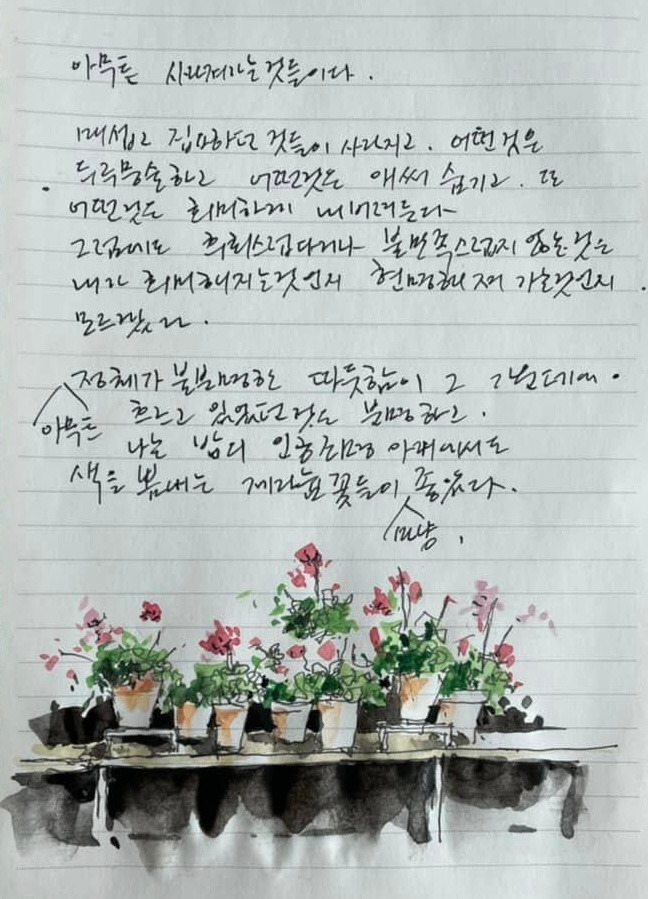 아무튼 사라져가는 것들이다.
매섭고 집요하던 것들이 사라지고. 어떤것은
두루뭉술하고 어떤것은 애써 숨기고. 또
어떤것은 희미하게 내버려둔다
그럼에도 후회스럽다거나 불만족스럽지 않은것은
내가 희미해지는것인지 현명해져 가는것인지.
모르겠다.
정체가 불분명한 따뜻함이 그 가운데에.
아무튼 흐르고 있었던것도 분명하고.
나는 밤의 인공조명 아래에서도
색을 뽐내는 제라늄 꽃들이 좋았다.
마냥.